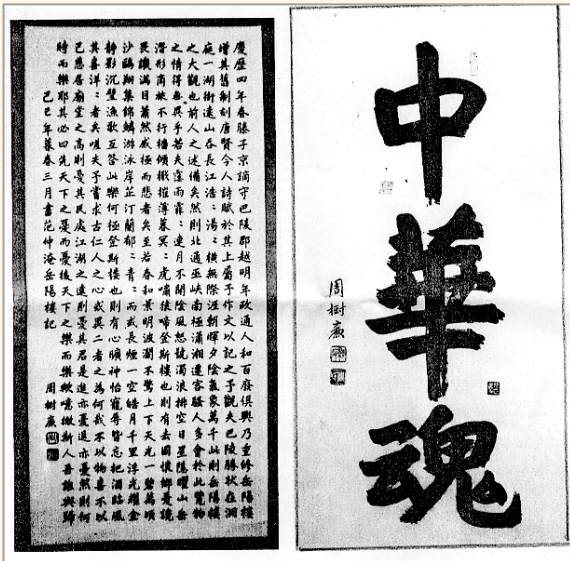 慶歷四年春滕子京謫守巴陵郡越明年政通人和百廢俱興乃重修岳陽樓
增其舊制刻唐賢今人詩賦於其上屬予作文以記之予觀夫巴陵勝狀在洞
庭一湖銜遠山吞長江浩〻湯〻橫無際涯朝暉夕陰氣象萬千此則岳陽樓
之大觀也前人之述備矣然則北通巫峽南極瀟湘遷客騷人多會於此覽物
之情得無異乎若夫霪雨霏〻連月不開陰風怒號濁浪排空日星隱曜山岳
潛形商旅不行檣傾楫摧薄暮冥〻虎嘯猿啼登斯樓也則有去國懷鄉憂讒
畏譏滿目蕭然感極而悲者矣至若春和景明波瀾不驚上下天光一碧萬頃
沙鷗翔集錦鱗游泳岸芷汀蘭郁〻青〻而或長煙一空皓月千里浮光耀金
靜影沉璧漁歌互答此樂何極登斯樓也則有心曠神怡寵辱皆忘把酒臨風
其喜洋〻者矣嗟夫予嘗求古仁人之心或異二者之為何哉不以物喜不以
己悲居廟堂之高則憂其民處江湖之遠則憂其君是進亦憂退亦憂然則何
時而樂耶其必曰先天下之憂而憂後天下之樂而樂歟噫微斯人吾誰與歸
己巳年暮春三月書范仲淹岳陽樓記
周樹廉
中華魂
周樹廉